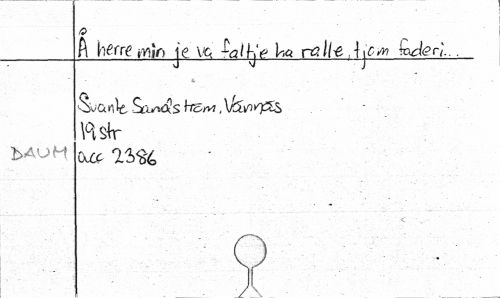 Å herre min je va faltje ha ralle, tjom faderi...
Svante Sandström, Vännäs
19 str
DAUM acc 2386